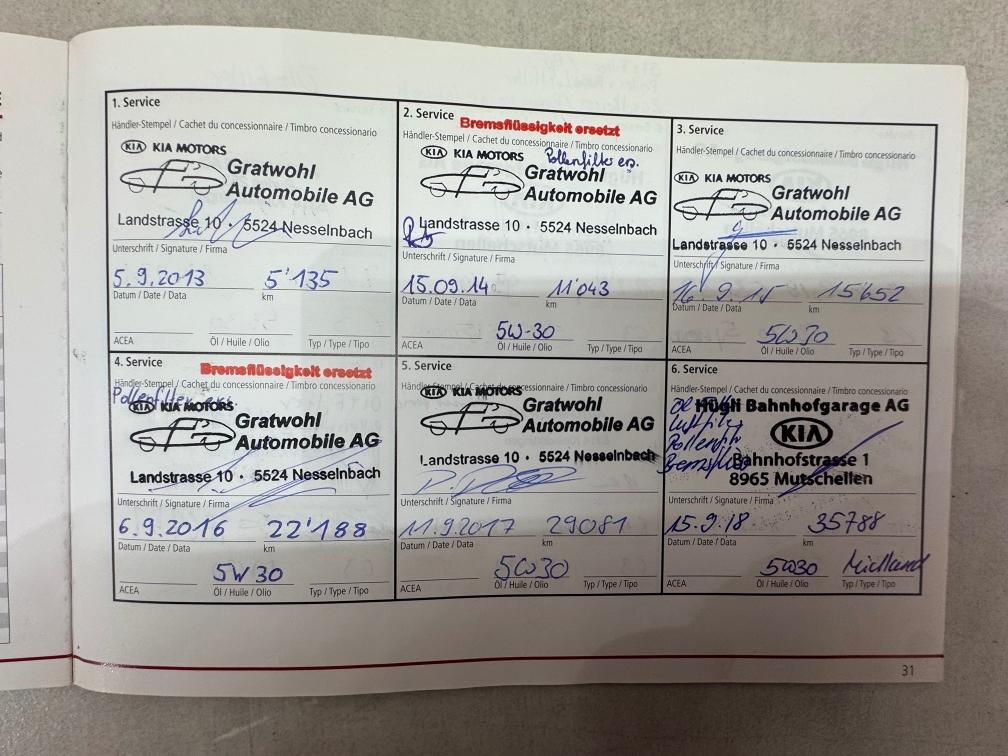 1. Service
Händler-Stempel / Cachet du concessionnaire / Timbro concessionario
KIA KIA MOTORS
Gratwohl
Automobile AG
Landstrasse 10 · 5524 Nesselnbach
Unterschrift / Signature / Firma
5.9.2013 5'135
Datum / Date / Data km
ACEA Öl / Huile / Olio Typ / Type / Tipo
2. Service
Bremsflüssigkeit ersetzt
Händler-Stempel / Cachet du concessionnaire / Timbro concessionario
KIA KIA MOTORS Pollenfilter ers.
Gratwohl
Automobile AG
Landstrasse 10 · 5524 Nesselnbach
Unterschrift / Signature / Firma
15.09.14 11'043
Datum / Date / Data km
5W-30
ACEA Öl / Huile / Olio Typ / Type / Tipo
3. Service
Händler-Stempel / Cachet du concessionnaire / Timbro concessionario
KIA KIA MOTORS
Gratwohl
Automobile AG
Landstrasse 10 · 5524 Nesselnbach
Unterschrift / Signature / Firma
16.9.15 15'652
Datum / Date / Data km
5W30
ACEA Öl / Huile / Olio Typ / Type / Tipo
4. Service
Bremsflüssigkeit ersetzt
Händler-Stempel / Cachet du concessionnaire / Timbro concessionario
Pollenfilter ers.
KIA KIA MOTORS
Gratwohl
Automobile AG
Landstrasse 10 · 5524 Nesselnbach
Unterschrift / Signature / Firma
6.9.2016 22'188
Datum / Date / Data km
5W30
ACEA Öl / Huile / Olio Typ / Type / Tipo
5. Service
Händler-Stempel / Cachet du concessionnaire / Timbro concessionario
KIA KIA MOTORS
Gratwohl
Automobile AG
Landstrasse 10 · 5524 Nesselnbach
Unterschrift / Signature / Firma
11.9.2017 29081
Datum / Date / Data km
5W30
ACEA Öl / Huile / Olio Typ / Type / Tipo
6. Service
Händler-Stempel / Cachet du concessionnaire / Timbro concessionario
Hügli Bahnhofgarage AG
KIA
Bahnhofstrasse 1
8965 Mutschellen
Unterschrift / Signature / Firma
15.9.18 35788
Datum / Date / Data km
5W30 Midland
ACEA Öl / Huile / Olio Typ / Type / Tipo
31